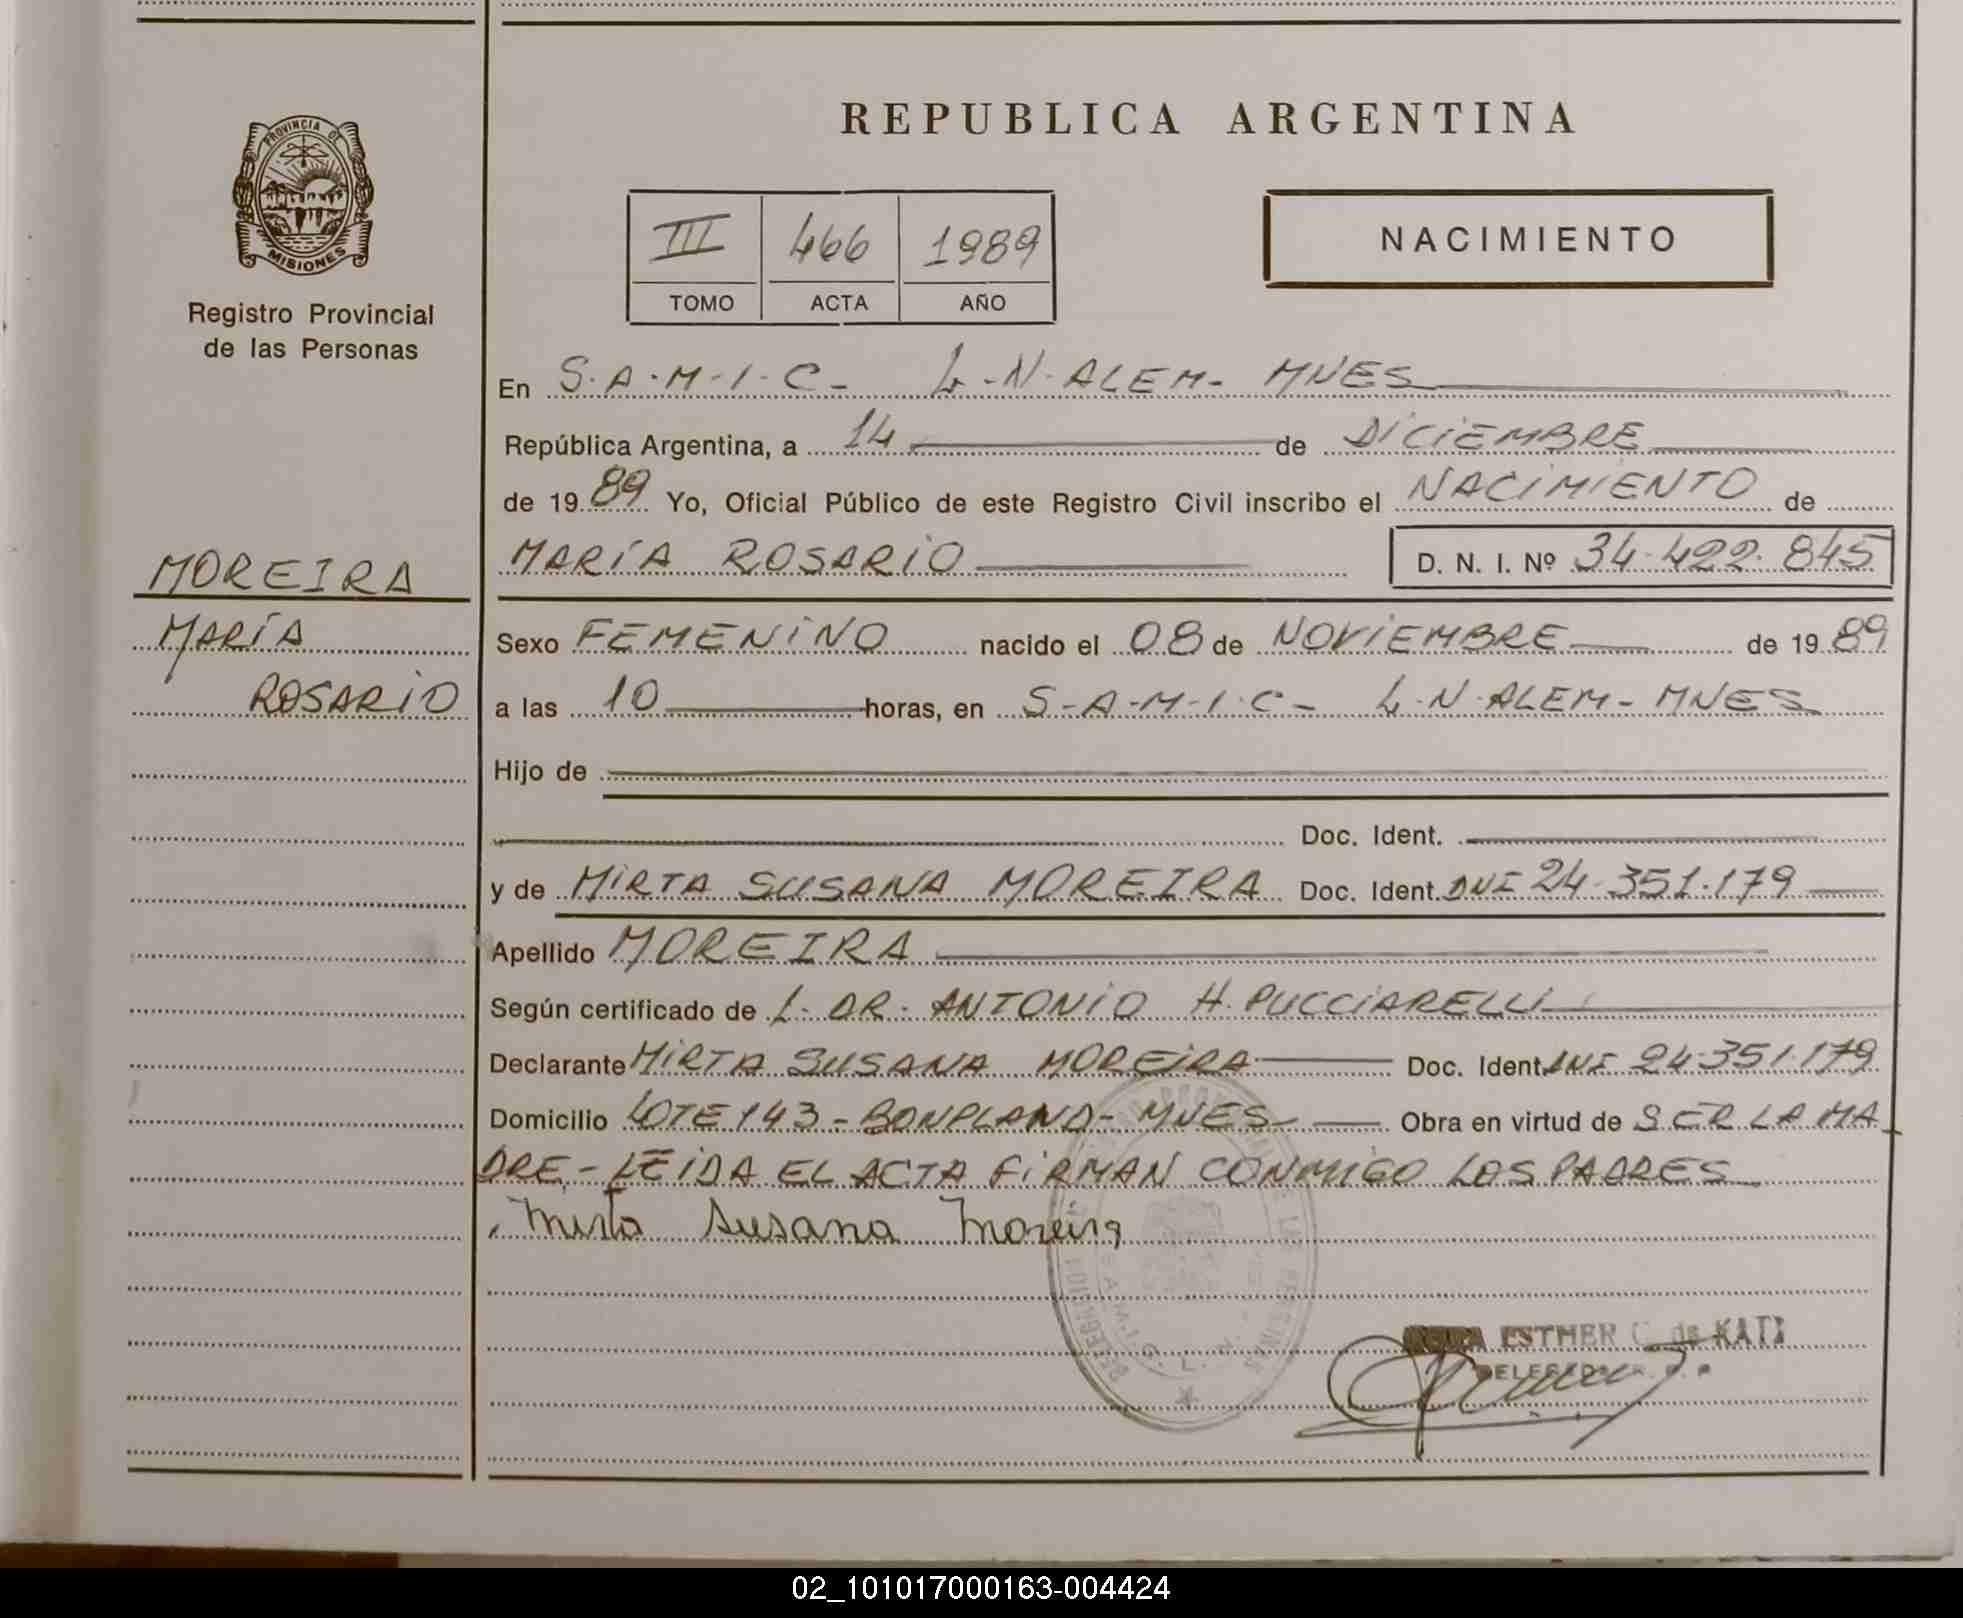 REPUBLICA ARGENTINA
PROVINCIA DE
MISIONES
Registro Provincial
de las Personas
III 466 1989
TOMO ACTA AÑO
NACIMIENTO
En S.A.M.I.C- L.N.ALEM- MNES
República Argentina, a 14 de DICIEMBRE
de 1989 Yo, Oficial Público de este Registro Civil inscribo el NACIMIENTO de
MARÍA ROSARIO D. N. I. Nº 34.422.845
MOREIRA
MARÍA
ROSARIO
Sexo FEMENINO nacido el 08 de NOVIEMBRE de 1989
a las 10 horas, en S-A-M-I.C- L.N.ALEM- MNES
Hijo de
Doc. Ident.
y de MIRTA SUSANA MOREIRA Doc. Ident. DNI 24.351.179
Apellido MOREIRA
Según certificado de L. DR. ANTONIO H. PUCCIARELLI
Declarante MIRTA SUSANA MOREIRA Doc. Ident. DNI 24.351.179
Domicilio LOTE 143 - BONPLAND- MNES Obra en virtud de SER LA MA
DRE - LEIDA EL ACTA FIRMAN CONMIGO LOS PADRES
Mirta Susana Moreira
ESTHER C. de KATZ
02_101017000163-004424